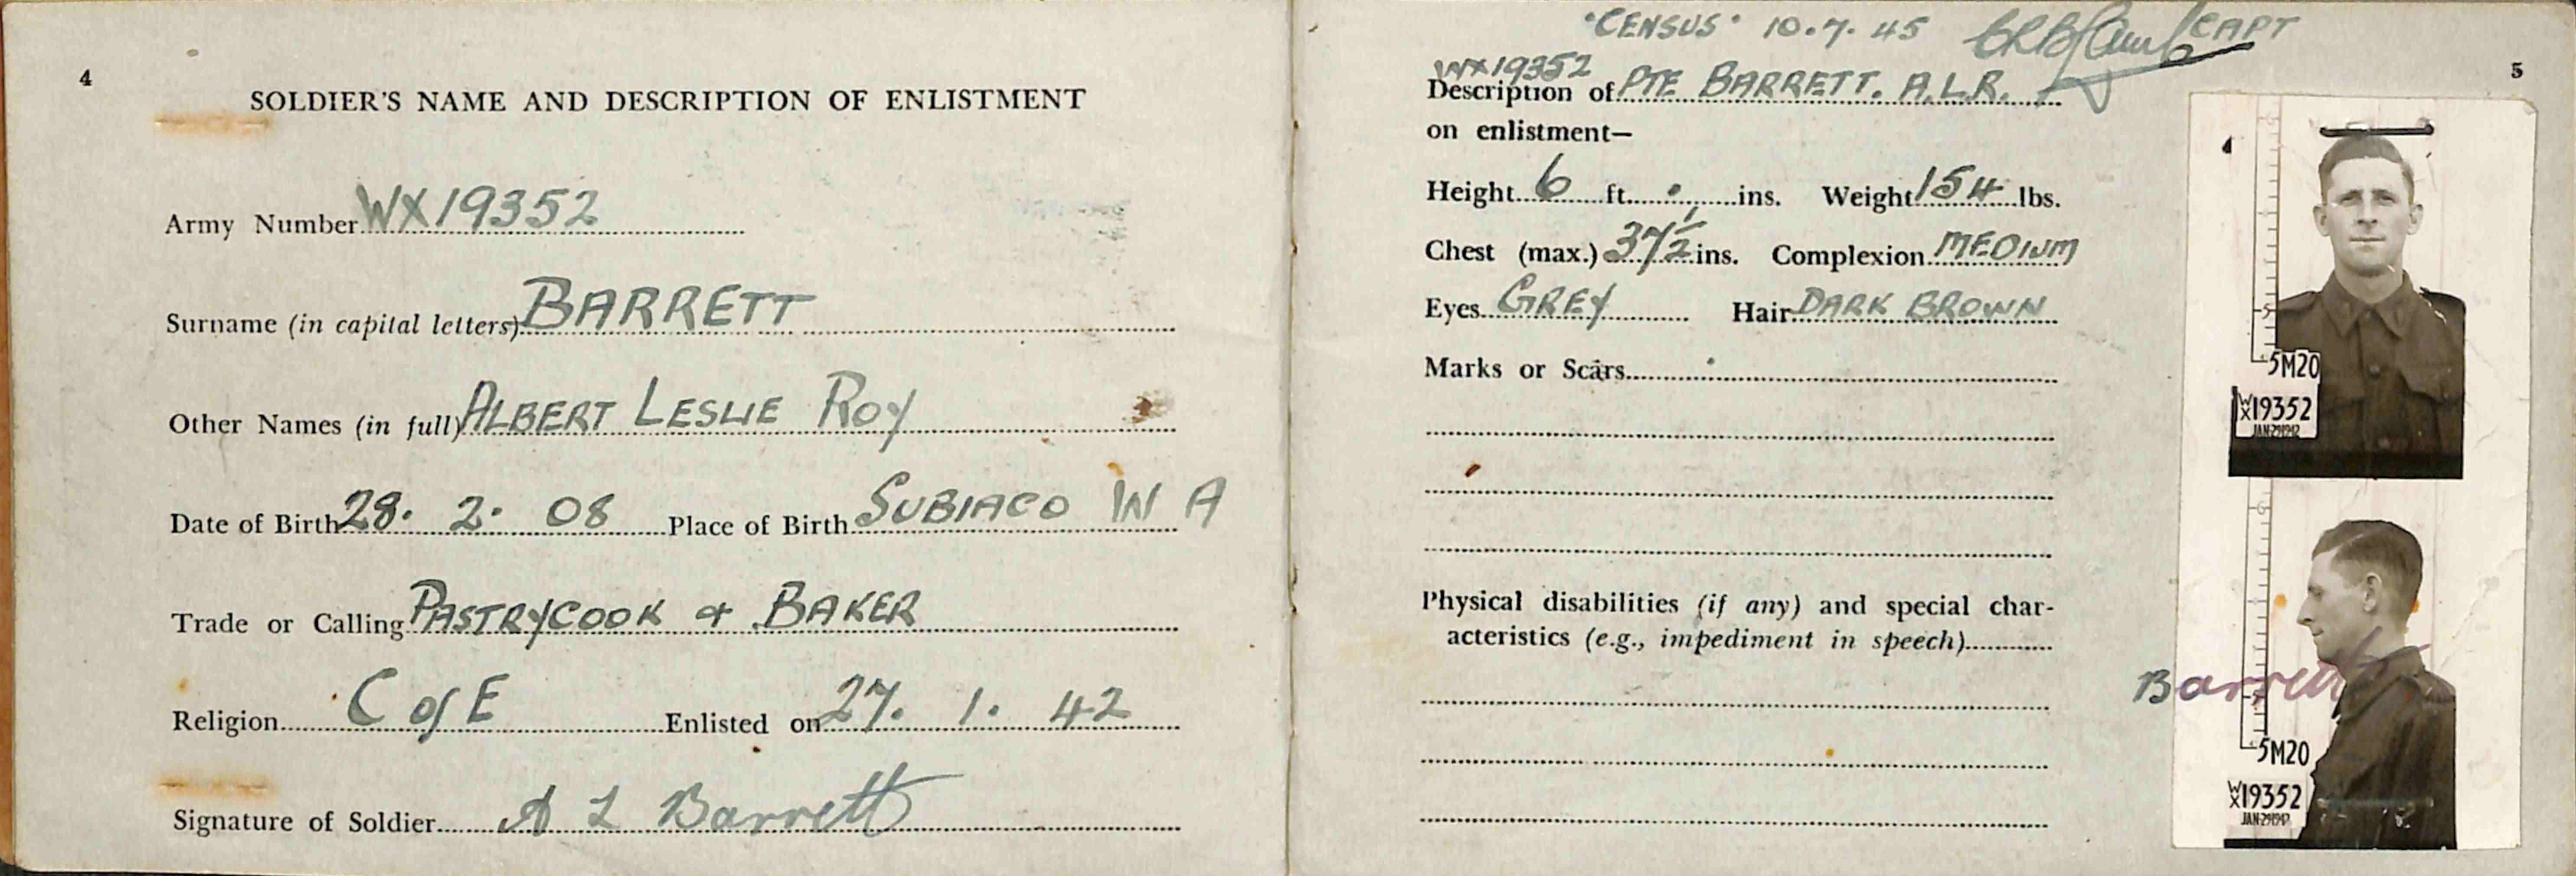 4
SOLDIER'S NAME AND DESCRIPTION OF ENLISTMENT
Army Number WX19352
Surname (in capital letters) BARRETT
Other Names (in full) ALBERT LESLIE ROY
Date of Birth 28. 2. 08 Place of Birth SUBIACO W A
Trade or Calling PASTRYCOOK & BAKER
Religion C of E Enlisted on 27. 1. 42
Signature of Soldier A L Barrett
"CENSUS" 10.7.45 CAPT
5
WX19352
Description of PTE BARRETT. A.L.R.
on enlistment—
Height 6 ft. . ins. Weight 154 lbs.
Chest (max.) 37½ ins. Complexion MEDIUM
Eyes GREY Hair DARK BROWN
Marks or Scars
Physical disabilities (if any) and special char-
acteristics (e.g., impediment in speech)
5M20
WX19352
JAN 29 1942
Barrett
5M20
WX19352
JAN 29 1942